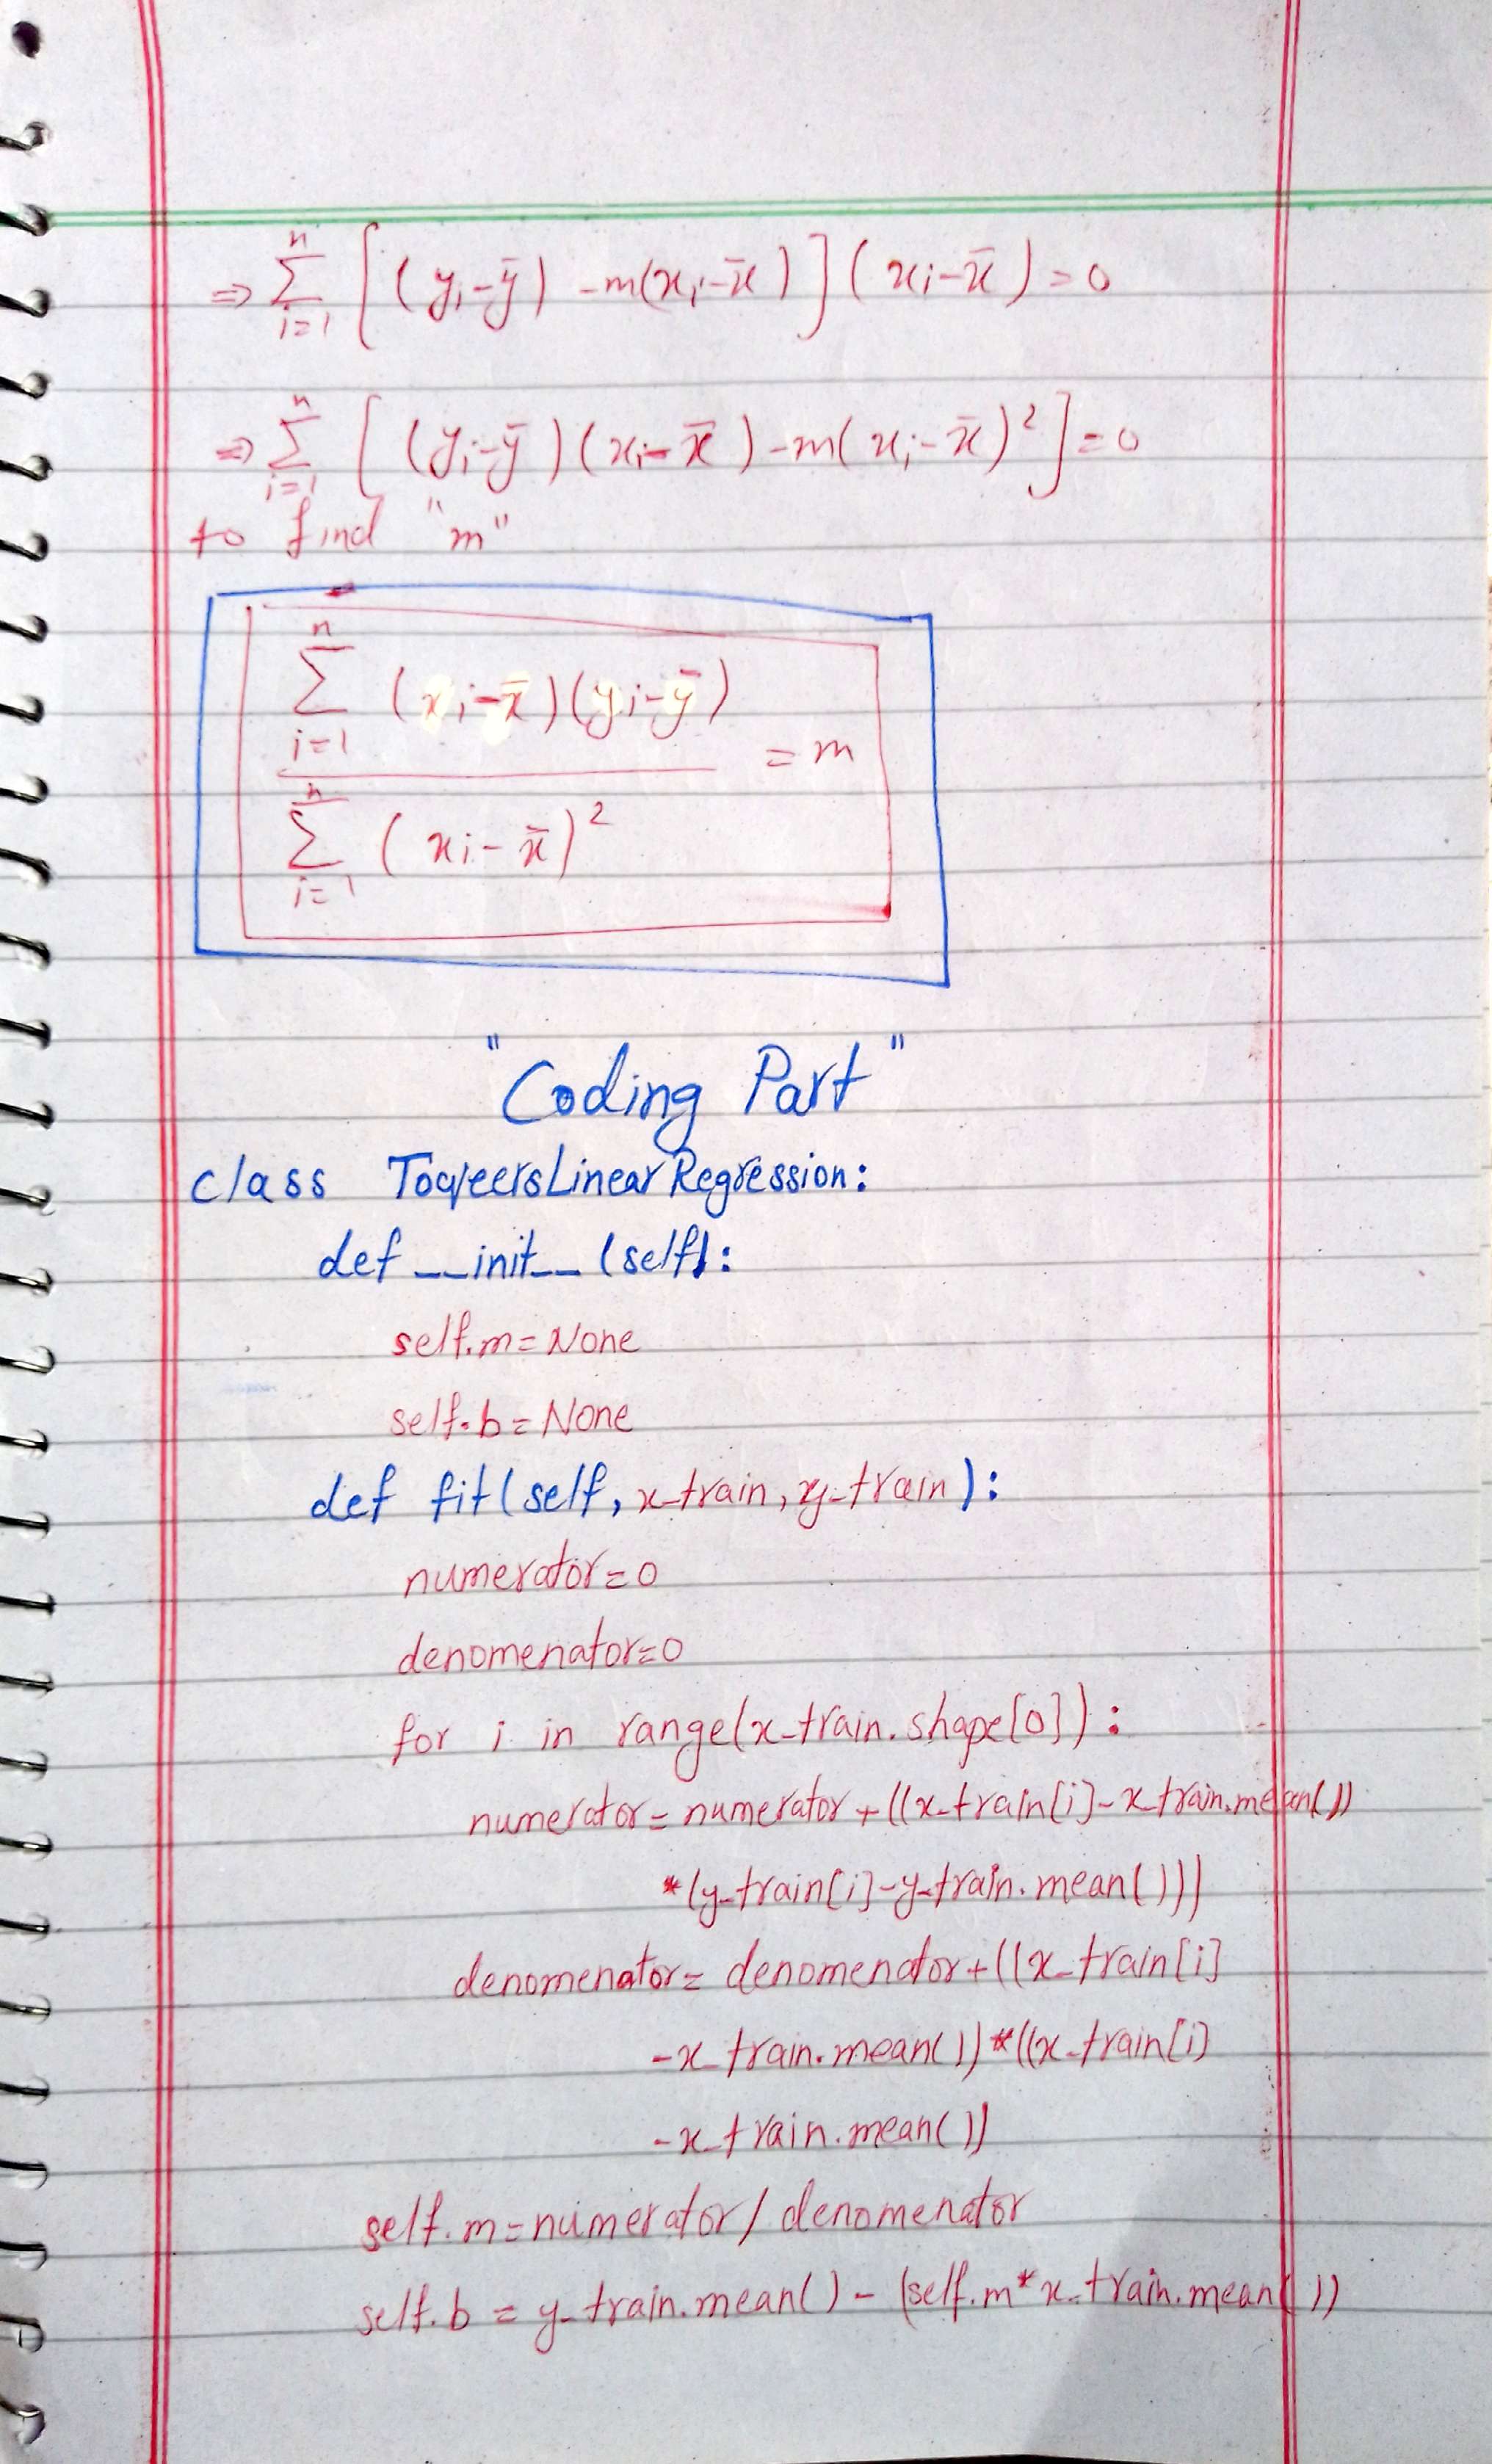 ⇒ n Σ i=1 [(yᵢ-ȳ) -m(xᵢ-x̄)](xᵢ-x̄)=0
⇒ n Σ i=1 [(yᵢ-ȳ)(xᵢ-x̄)-m(xᵢ-x̄)²]=0
to find "m"
n Σ i=1 (xᵢ-x̄)(yᵢ-ȳ)
= m
n Σ i=1 (xᵢ-x̄)²
"Coding Part"
class ToqeersLinearRegression:
def __init__(self):
self.m=None
self.b=None
def fit(self, x_train, y_train):
numerator=0
denomenator=0
for i in range(x_train.shape[0]):
numerator=numerator+((x_train[i]-x_train.mean())
*(y_train[i]-y_train.mean()))
denomenator=denomenator+((x_train[i]
-x_train.mean())*((x_train[i]
-x_train.mean())
self.m=numerator/denomenator
self.b=y_train.mean()-(self.m*x_train.mean())